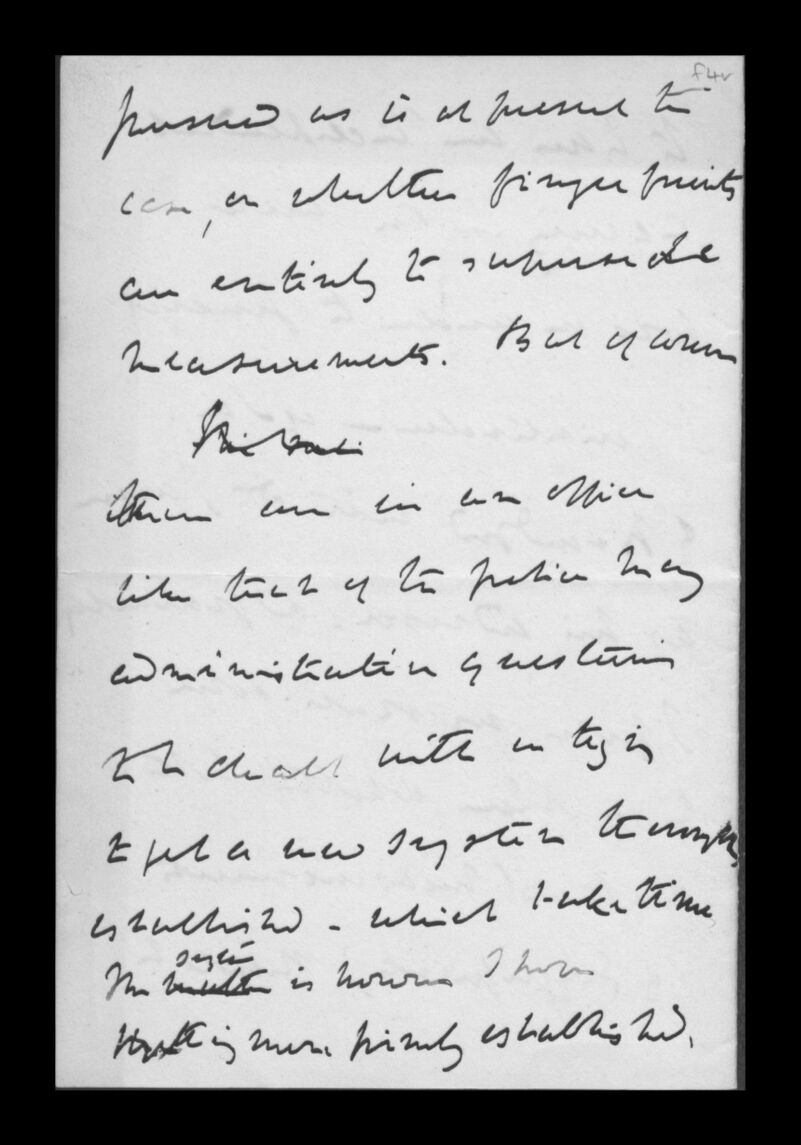 f4v
pursued as is at present the
case, or whether finger prints
are entirely to supersede
measurements. But of course
there are in an office
like that of the police many
administrative questions
to be dealt with in trying
to get a new system thoroughly
established - which takes time
The system is however I hope
getting more firmly established.